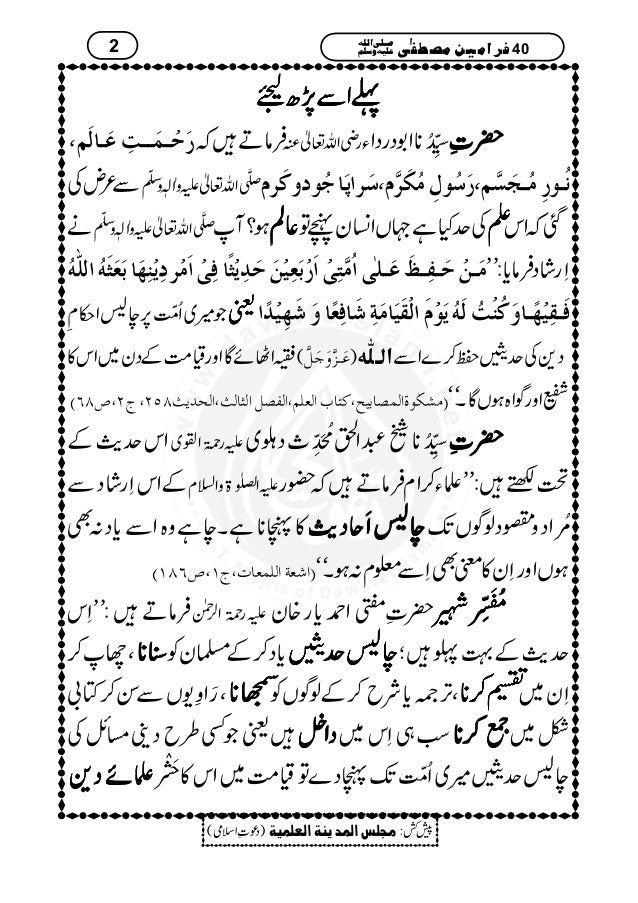 2
40 فرامین مصطفٰی صلی اللہ علیہ وسلم
پہلے اسے پڑھ لیجئے
حضرتِ سیِّدُنا ابودرداء رضی اللہ تعالیٰ عنہ فرماتے ہیں کہ رَحْمَتِ عَالَم،
نُورِ مُجَسَّم، رَسُولِ مُکَرَّم، سَراپَا جُودوکَرم صلَّی اللہ تعالیٰ علیہ والہٖ وسلّم سے عرض کی
گئی کہ اس علم کی حد کیا ہے جہاں انسان پہنچے تو عالم ہو؟ آپ صلَّی اللہ تعالیٰ علیہ والہٖ وسلّم نے
اِرشاد فرمایا: ’’مَنْ حَفِظَ عَلٰی اُمَّتِیْ اَرْبَعِیْنَ حَدِیْثًا فِیْ اَمْرِ دِیْنِہَا بَعَثَہُ اللّٰہُ
فَقِیْہًا وَکُنْتُ لَہٗ یَوْمَ الْقِیَامَۃِ شَافِعًا وَّ شَہِیْدًا یعنی جو میری اُمّت پر چالیس احکامِ
دین کی حدیثیں حفظ کرے اسے اللّٰہ (عَزَّوَجَلَّ) فقیہ اٹھائے گا اور قیامت کے دن میں اس کا
شفیع اور گواہ ہوں گا۔‘‘ (مشکوۃ المصابیح، کتاب العلم، الفصل الثالث، الحدیث ۲۵۸، ج۲، ص۶۸)
حضرتِ سیِّدُنا شیخ عبدالحق مُحَدِّث دہلوی علیہ رحمۃ القوی اس حدیث کے
تحت لکھتے ہیں: ’’علماء کرام فرماتے ہیں کہ حضور علیہ الصلوۃ والسلام کے اس اِرشاد سے
مُراد و مقصود لوگوں تک چالیس اَحادیث کا پہنچانا ہے۔ چاہے وہ اسے یاد نہ بھی
ہوں اور اِن کا معنی بھی اِسے معلوم نہ ہو۔‘‘ (اشعۃ اللمعات، ج۱، ص۱۸۶)
مُفَسِّرِ شہیر حضرتِ مفتی احمد یار خان علیہ رحمۃ الرحمٰن فرماتے ہیں: ’’اِس
حدیث کے بہت پہلو ہیں؛ چالیس حدیثیں یاد کر کے مسلمان کو سنانا، چھاپ کر
اِن میں تقسیم کرنا، ترجمہ یا شرح کر کے لوگوں کو سمجھانا، رَاوِیوں سے سن کر کتابی
شکل میں جمع کرنا سب ہی اِس میں داخل ہیں یعنی جو کسی طرح دینی مسائل کی
چالیس حدیثیں میری اُمّت تک پہنچادے تو قیامت میں اس کا حَشْر علمائے دین
پیش کش: مجلس المدینۃ العلمیۃ (دعوتِ اسلامی)